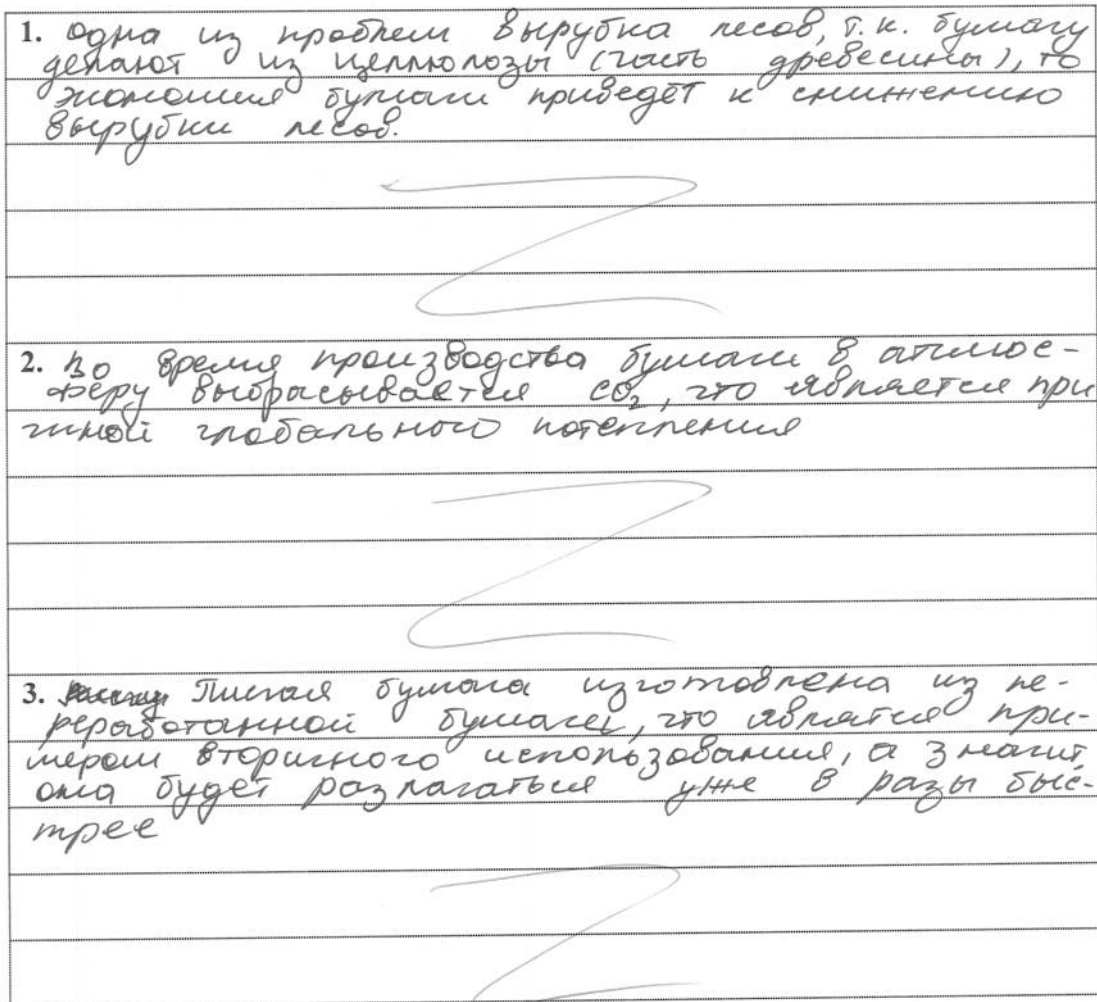 1. Одна из проблем вырубка лесов, т.к. бумагу
делают из целлюлозы (часть древесины), то
экономия бумаги приведёт к снижению
вырубки лесов.
2. Во время производства бумаги в атмос-
феру выбрасывается CO₂, что является при
чиной глобального потепления
3. бумага изготовлена из пе-
реработанной бумаги, что является при-
мером вторичного использования, а значит
она будет разлагаться уже в разы быс-
трее